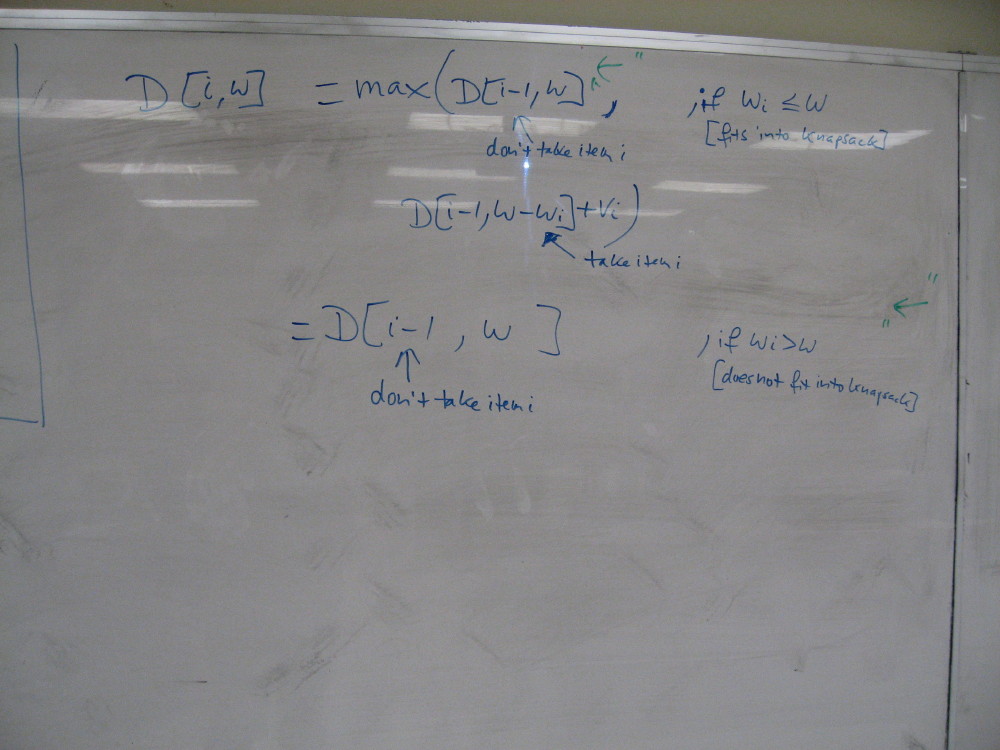 D[i,w] = max(D[i-1,w], ← " , if wi ≤ w
don't take item i [fits into knapsack]
D[i-1,w-wi]+vi)
take item i
← "
"
= D[i-1, w] , if wi>w
don't take item i [does not fit into knapsack]